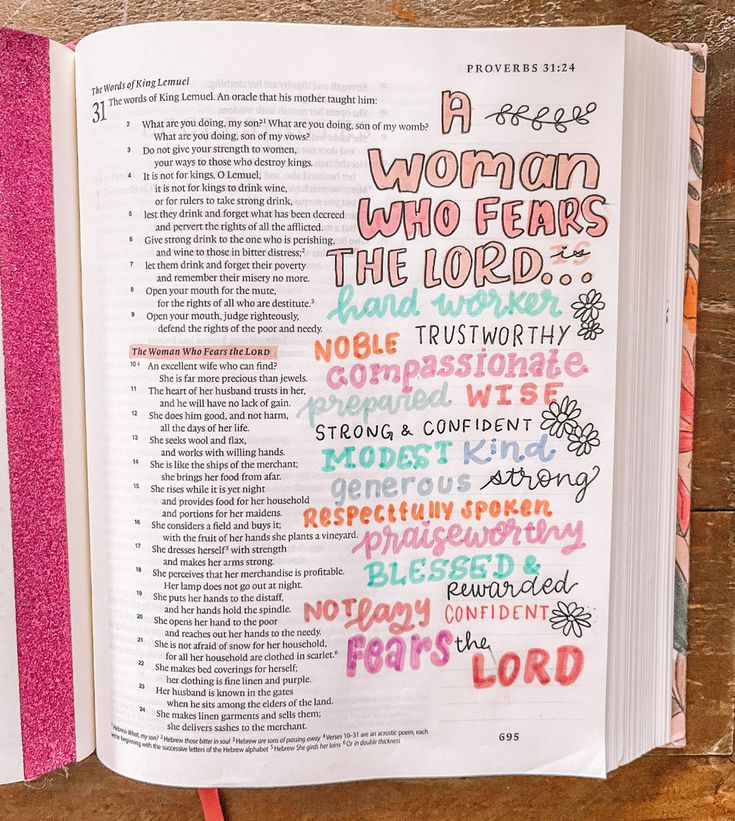 PROVERBS 31:24
The Words of King Lemuel
31 The words of King Lemuel. An oracle that his mother taught him:
2 What are you doing, my son?1 What are you doing, son of my womb?
What are you doing, son of my vows?
3 Do not give your strength to women,
your ways to those who destroy kings.
4 It is not for kings, O Lemuel,
it is not for kings to drink wine,
or for rulers to take strong drink,
5 lest they drink and forget what has been decreed
and pervert the rights of all the afflicted.
6 Give strong drink to the one who is perishing,
and wine to those in bitter distress;2
7 let them drink and forget their poverty
and remember their misery no more.
8 Open your mouth for the mute,
for the rights of all who are destitute.3
9 Open your mouth, judge righteously,
defend the rights of the poor and needy.
The Woman Who Fears the LORD
10 4 An excellent wife who can find?
She is far more precious than jewels.
11 The heart of her husband trusts in her,
and he will have no lack of gain.
12 She does him good, and not harm,
all the days of her life.
13 She seeks wool and flax,
and works with willing hands.
14 She is like the ships of the merchant;
she brings her food from afar.
15 She rises while it is yet night
and provides food for her household
and portions for her maidens.
16 She considers a field and buys it;
with the fruit of her hands she plants a vineyard.
17 She dresses herself5 with strength
and makes her arms strong.
18 She perceives that her merchandise is profitable.
Her lamp does not go out at night.
19 She puts her hands to the distaff,
and her hands hold the spindle.
20 She opens her hand to the poor
and reaches out her hands to the needy.
21 She is not afraid of snow for her household,
for all her household are clothed in scarlet.6
22 She makes bed coverings for herself;
her clothing is fine linen and purple.
23 Her husband is known in the gates
when he sits among the elders of the land.
24 She makes linen garments and sells them;
she delivers sashes to the merchant.
1 Hebrew What, my son? 2 Hebrew those bitter in soul 3 Hebrew are sons of passing away 4 Verses 10–31 are an acrostic poem, each
verse beginning with the successive letters of the Hebrew alphabet 5 Hebrew She girds her loins 6 Or in double thickness
695
A
WOMAN
WHO FEARS
THE LORD... is
hard worker
TRUSTWORTHY
NOBLE
compassionate
prepared WISE
STRONG & CONFIDENT
MODEST Kind
generous strong
RESPECTFULLY SPOKEN
praiseworthy
BLESSED &
Rewarded
NOT lazy CONFIDENT
FEARS the
LORD